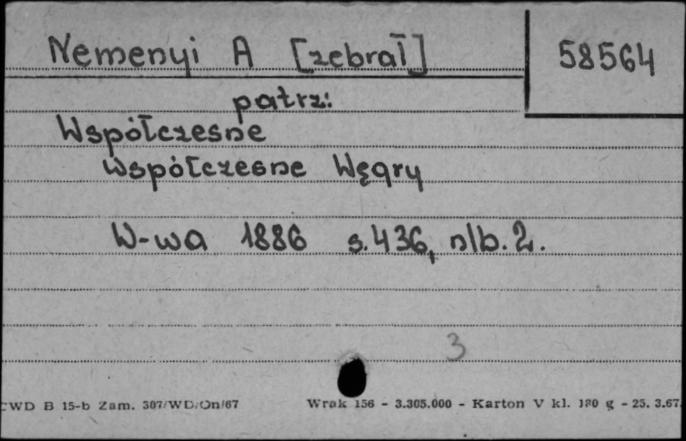 Nemenyi A [zebrał]
58564
patrz:
Współczesne
Współczesne Węgry
W-wa 1886 s. 436, nlb. 2.
3
CWD B 15-b Zam. 307/WD/On/67
Wrak 156 - 3.305.000 - Karton V kl. 180 g - 25. 3.67.